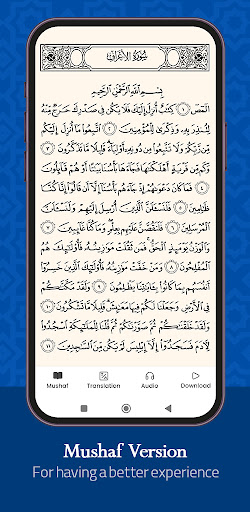 سُورَةُ الأَعْرَافِ
بِسْمِ اللَّهِ الرَّحْمَٰنِ الرَّحِيمِ
الٓمٓصٓ ۝١ كِتَٰبٌ أُنزِلَ إِلَيْكَ فَلَا يَكُن فِي صَدْرِكَ حَرَجٌ مِّنْهُ
لِتُنذِرَ بِهِۦ وَذِكْرَىٰ لِلْمُؤْمِنِينَ ۝٢ ٱتَّبِعُوا۟ مَآ أُنزِلَ إِلَيْكُم
مِّن رَّبِّكُمْ وَلَا تَتَّبِعُوا۟ مِن دُونِهِۦٓ أَوْلِيَآءَ قَلِيلًا مَّا تَذَكَّرُونَ ۝٣
وَكَم مِّن قَرْيَةٍ أَهْلَكْنَٰهَا فَجَآءَهَا بَأْسُنَا بَيَٰتًا أَوْ هُمْ قَآئِلُونَ
۝٤ فَمَا كَانَ دَعْوَىٰهُمْ إِذْ جَآءَهُم بَأْسُنَآ إِلَّآ أَن قَالُوٓا۟ إِنَّا كُنَّا
ظَٰلِمِينَ ۝٥ فَلَنَسْـَٔلَنَّ ٱلَّذِينَ أُرْسِلَ إِلَيْهِمْ وَلَنَسْـَٔلَنَّ
ٱلْمُرْسَلِينَ ۝٦ فَلَنَقُصَّنَّ عَلَيْهِم بِعِلْمٍ وَمَا كُنَّا غَآئِبِينَ ۝٧
وَٱلْوَزْنُ يَوْمَئِذٍ ٱلْحَقُّ فَمَن ثَقُلَتْ مَوَٰزِينُهُۥ فَأُو۟لَٰٓئِكَ هُمُ
ٱلْمُفْلِحُونَ ۝٨ وَمَنْ خَفَّتْ مَوَٰزِينُهُۥ فَأُو۟لَٰٓئِكَ ٱلَّذِينَ خَسِرُوٓا۟
أَنفُسَهُم بِمَا كَانُوا۟ بِـَٔايَٰتِنَا يَظْلِمُونَ ۝٩ وَلَقَدْ مَكَّنَّٰكُمْ
فِي ٱلْأَرْضِ وَجَعَلْنَا لَكُمْ فِيهَا مَعَٰيِشَ قَلِيلًا مَّا تَشْكُرُونَ ۝١٠
وَلَقَدْ خَلَقْنَٰكُمْ ثُمَّ صَوَّرْنَٰكُمْ ثُمَّ قُلْنَا لِلْمَلَٰٓئِكَةِ ٱسْجُدُوا۟
لِـَٔادَمَ فَسَجَدُوٓا۟ إِلَّآ إِبْلِيسَ لَمْ يَكُن مِّنَ ٱلسَّٰجِدِينَ ۝١١
Mushaf Translation Audio Download
Mushaf Version
For having a better experience